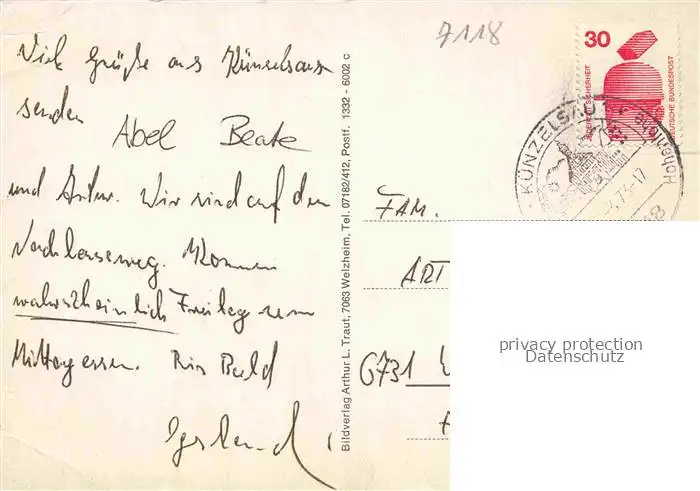 Viele Grüße aus Künzelsau
senden
Abel Beate
und Artur. Wir sind auf dem
Nachhauseweg. Kommen
wahrscheinlich Freitag zum
Mittagessen. Bis Bald
Bildverlag Arthur L. Traut, 7063 Welzheim, Tel. 07182/412, Postf. 1332 - 6002 c
7118
30
JEDERZEIT SICHERHEIT
DEUTSCHE BUNDESPOST
KÜNZELSAU 1
Hohenlohe
.73-17
7118
FAM.
ART
6731
privacy protection
Datenschutz